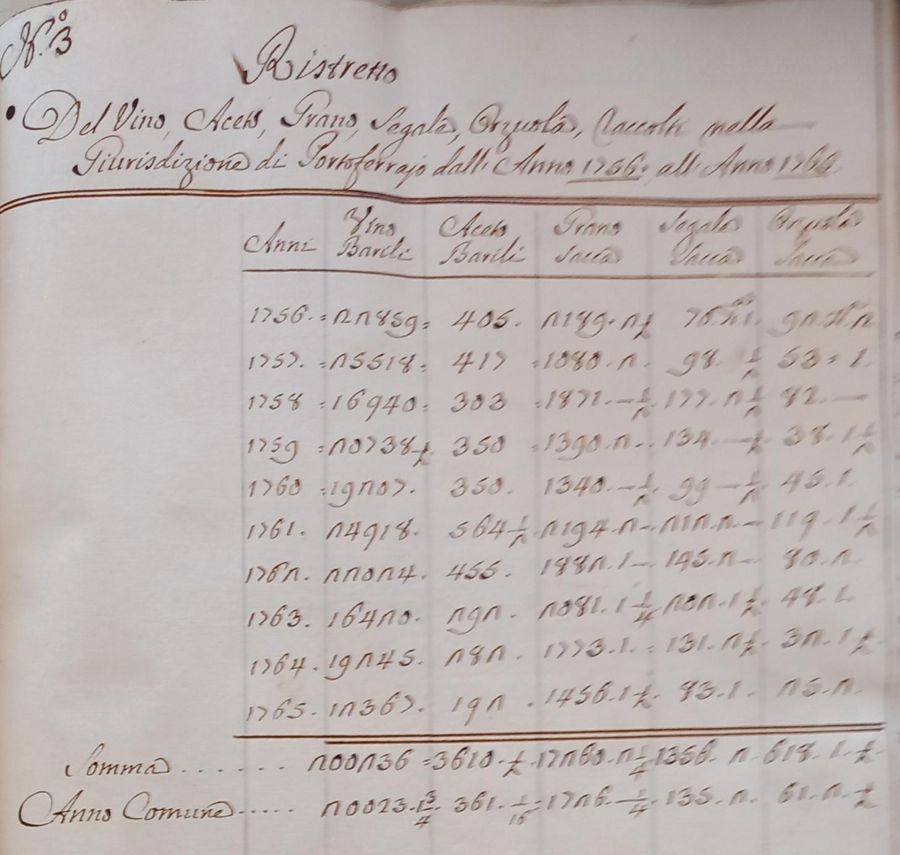 N.º 3
Ristretto
Del Vino, Aceto, Grano, Segale, Orzuola, Raccolti nella
Giurisdizione di Portoferrajo dall' Anno 1756. all' Anno 1765
Anni Vino Barili Aceto Barili Grano Sacca Segale Sacca Orzuola Sacca
1756. = 22859 = 405. 2189. 2½ 1. 92. 2
1757. = 25518 = 417 = 1080. 2. 98. ½ 53 = 1.
1758 = 16940 = 303 = 1871. — ½. 177. 2½. 82. —
1759 = 20738½ 350 = 1390. 2 - . 134. — ½. 38. 1½
1760 = 19207. 350. 1340. — ½. 99 — ½. 45. 1.
1761. 24918. 564½ 2194. 2 - . 212. 2 - 119. 1½
1762. 22024. 455. 1882. 1 - 145. 2 - 80. 2.
1763. 16420. 292. 2081. 1¼ 202. 1½. 48. 1.
1764. 19245. 282. 1773. 1. = 131. 2½. 32. 1½
1765. 12367. 192. 1456. 1½. 83. 1. 25. 2.
Somma . . . . . . 200236 = 3610. ½. 17260. 2¼ 1356. 2. 618. 1. ½
Anno Comune . . . . . 20023. ¾. 361. 1/16 = 1726. — ¼. 135. 2. 61. 2. ½